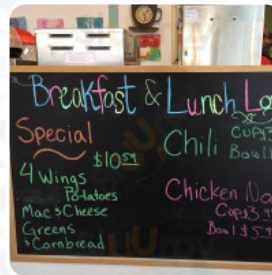 Breakfast & Lunch
Special
$10 59
4 Wings
Potatoes
Mac & Cheese
Greens
& Cornbread
Chili
Cup
Bowl
Chicken
Cup $3
Bowl $5